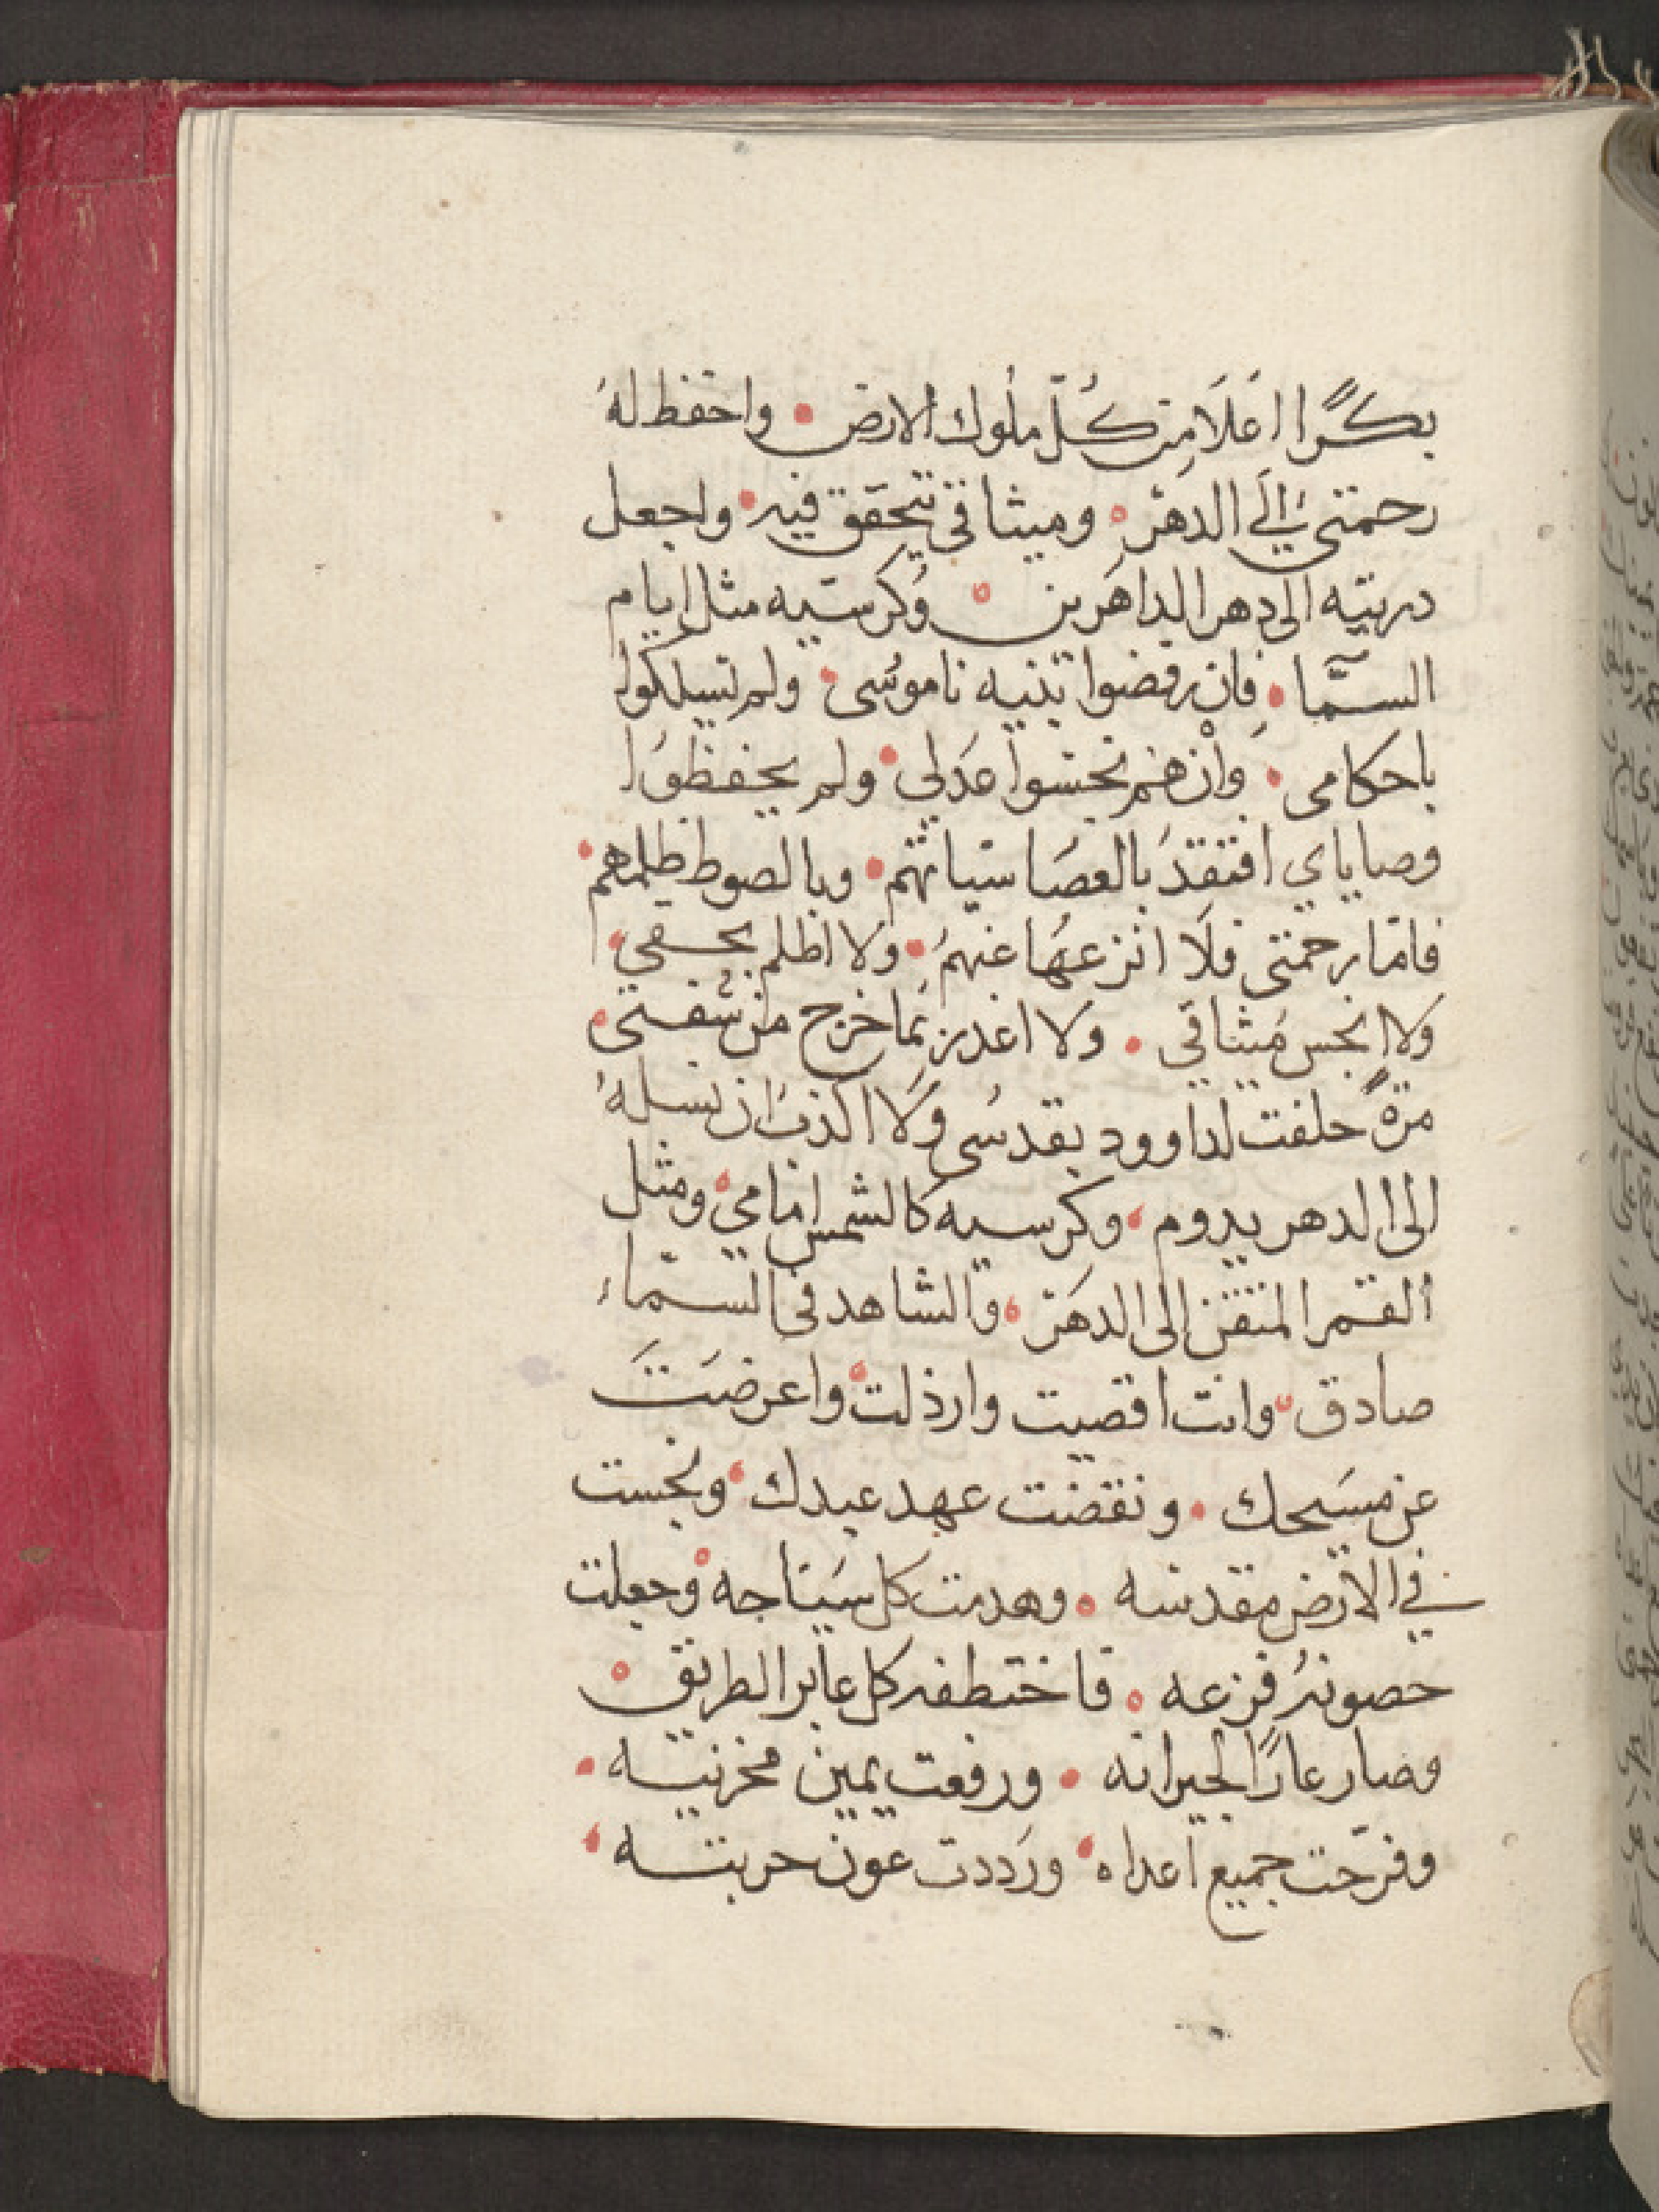 بكرًا اعَلَا مِن كُلّ ملُوك الارض • واحفظ لهُ
رحمتي اليَ الدهَرْ • وميثاقي يتحَقق فيه • واجعل
دريتيه الى دهر الداهَرين • وُكرستيه مثل ايام
السَّمآ • فِان رفضوا بنيه نامُوسي • ولم يسلكوا
باحكامي • وَانْ هم نجسَوا عَدَلي • ولم يحفظوَا
وصاياي افتقدَ بالعصَا سياتهم • وبالصوط ظلمهم •
فامّا رحمتي فلَا انزعهُا عنهمُ • وَلا اظلم بحقي •
وَلا انجس مَيثاقي • ولا اغدر بَما خرج منْ شفتي •
مرةً حلفت لداوود بقدسُي وَلَا اكذبُ ان نسلهُ
الى الدهر يدوم • وكرسيه كالشمس امامي • ومثل
القمر المتقن الى الدهَرْ • والشاهد في السّماء
صادق • وانت اقصيت وارذلت • واعرضَتَ
عن مسَيحك • ونقضت عهد عبدك • ونجست
في الارض مقدسه • وهدمت كل سَياجه • وجعلت
حصونهُ فزعه • فاختطفه كل عابر الطريق •
وصار عارًا لجيرانه • ورفعت يمين مخزنيه •
وفرّحت جميع اعداه • ورَددت عون حربته •